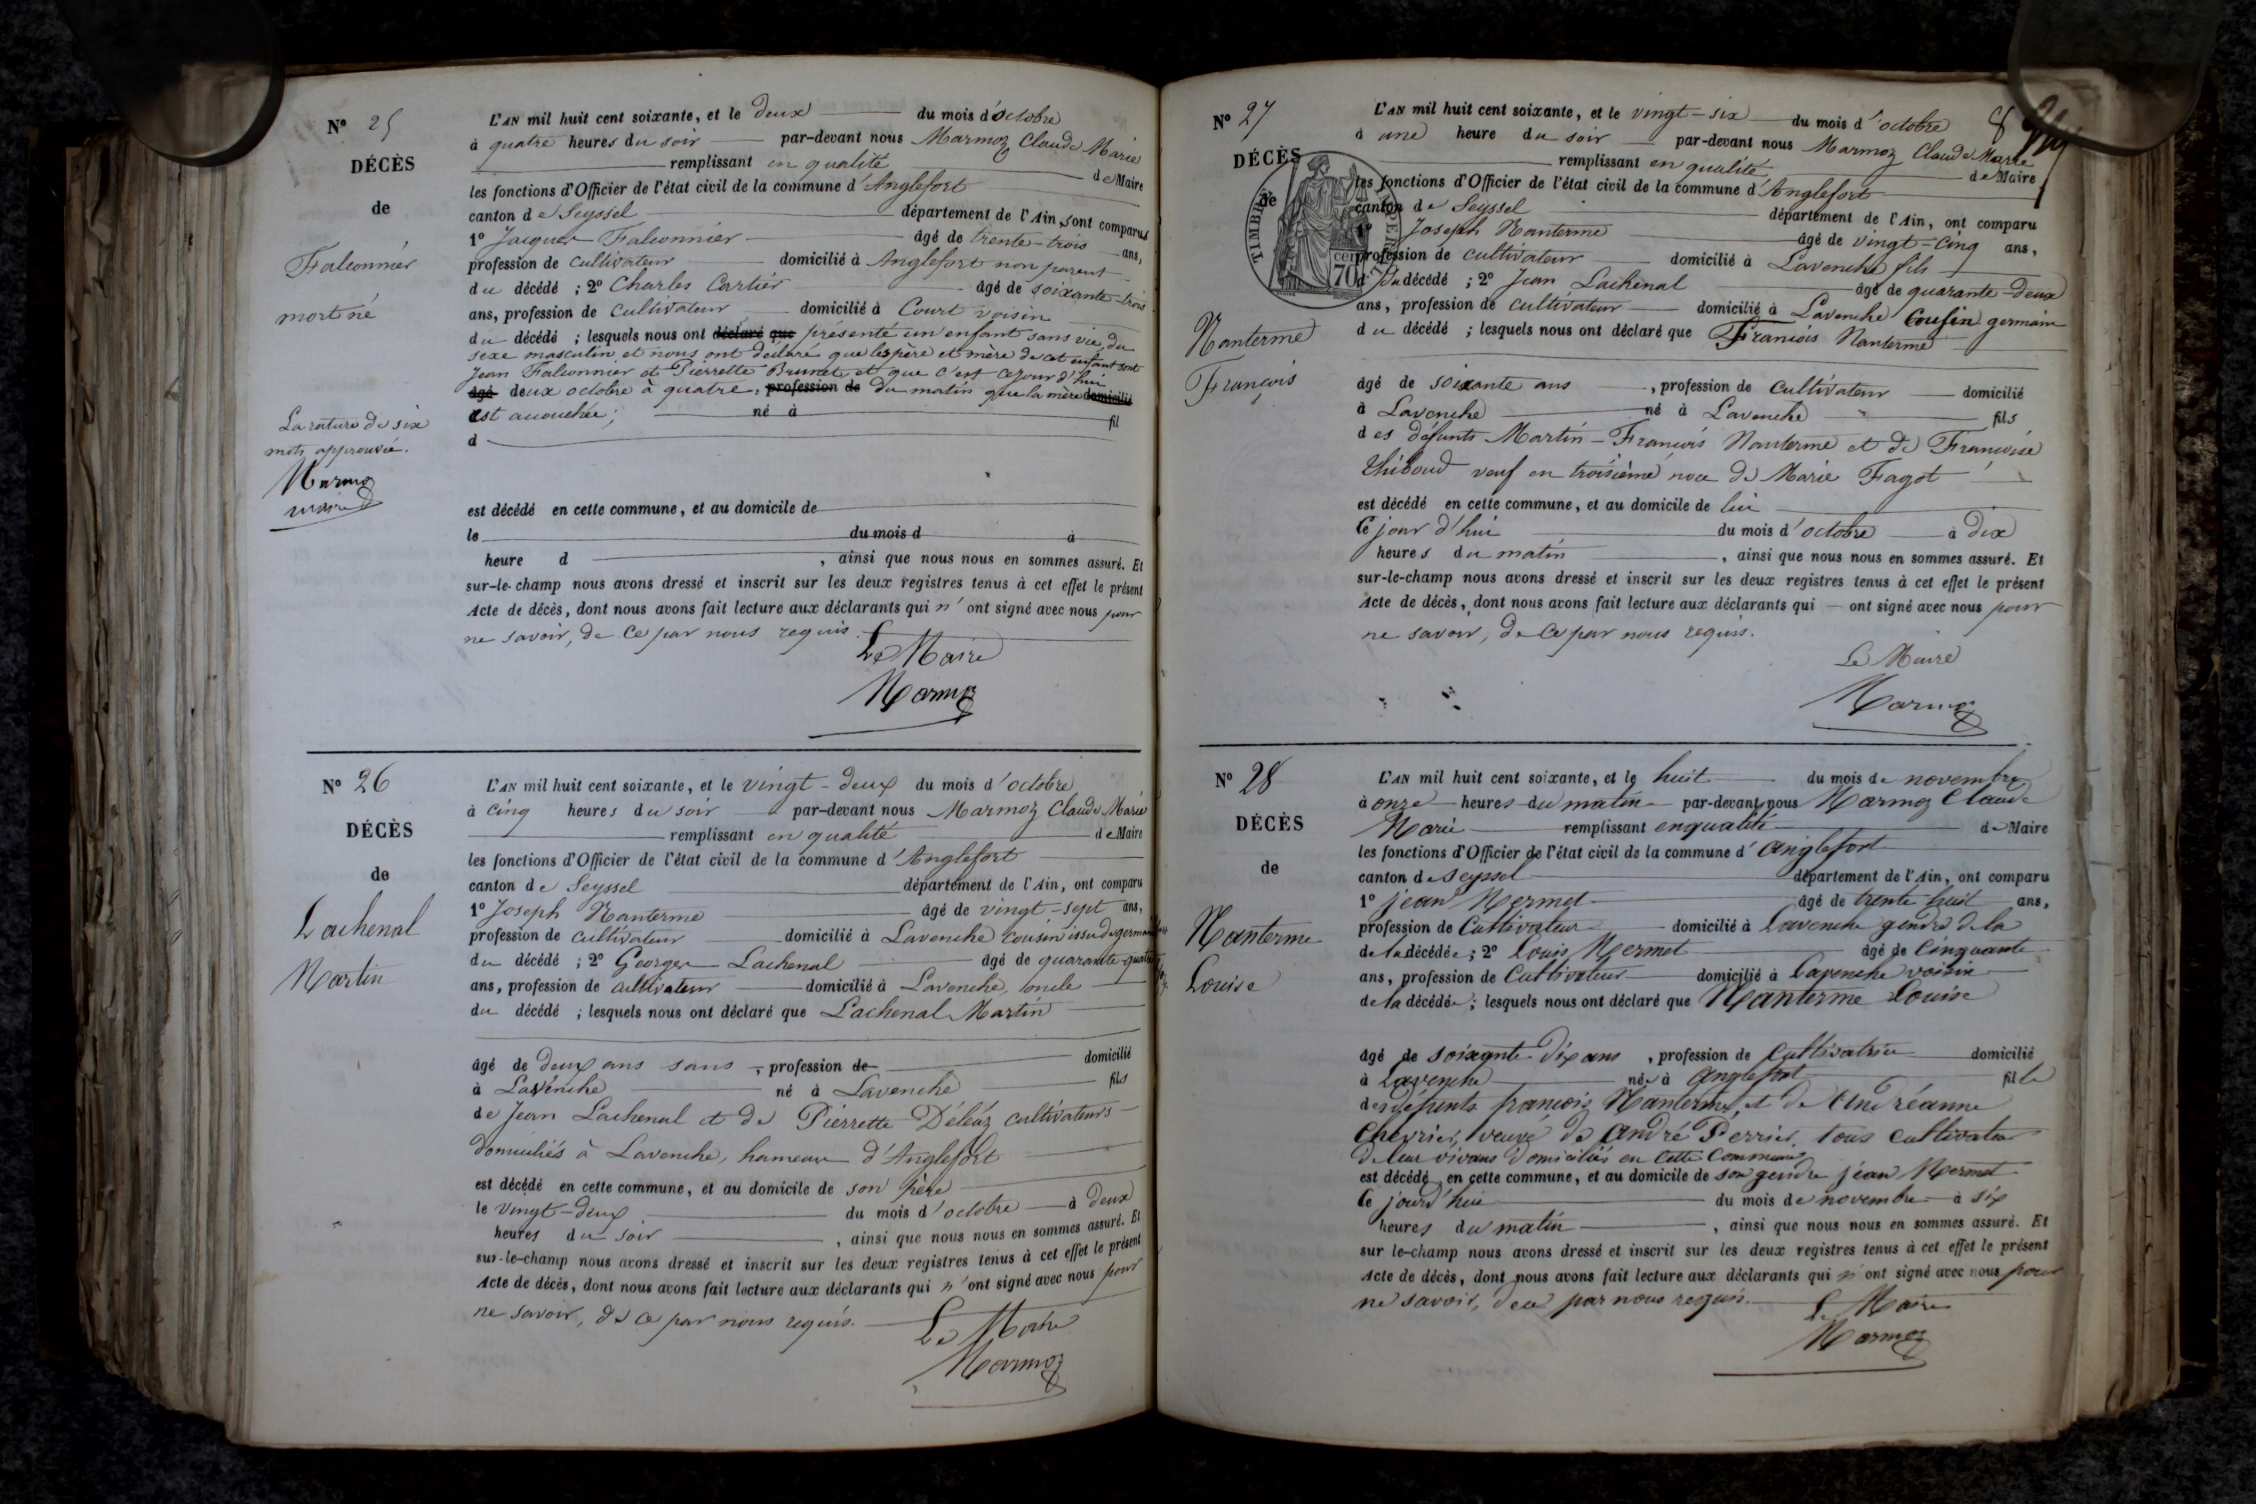 Nº 25
DÉCÈS
de
Falconnier
mort né
La rature de six
mots approuvée.
Marmoz
maire
L'AN mil huit cent soixante, et le deux du mois d'octobre
à quatre heures du soir par-devant nous Marmoz Claude Marie
remplissant en qualité de Maire
les fonctions d'Officier de l'état civil de la commune d'Anglefort
canton de Seyssel département de l'Ain, sont comparus
1º Jacques Falconnier âgé de trente-trois ans,
profession de cultivateur domicilié à Anglefort non parent
du décédé ; 2º Charles Cartier âgé de soixante-trois
ans, profession de cultivateur domicilié à Court voisin
du décédé ; lesquels nous ont déclaré que présenté un enfant sans vie, du
sexe masculin et nous ont déclaré que les père et mère de cet enfant sont
Jean Falconnier et Pierrette Brunet et que c'est cejour d'hui
âgé deux octobre à quatre, profession de du matin que la mère domicilié
est accouchée ; né à fil
d
est décédé en cette commune, et au domicile de
le du mois d à
heure d , ainsi que nous nous en sommes assuré. Et
sur-le-champ nous avons dressé et inscrit sur les deux registres tenus à cet effet le présent
Acte de décès, dont nous avons fait lecture aux déclarants qui n'ont signé avec nous pour
ne savoir, de ce par nous requis.
Le Maire
Marmoz
Nº 26
DÉCÈS
de
Lachenal
Martin
L'AN mil huit cent soixante, et le vingt-deux du mois d'octobre
à cinq heures du soir par-devant nous Marmoz Claude Marie
remplissant en qualité de Maire
les fonctions d'Officier de l'état civil de la commune d'Anglefort
canton de Seyssel département de l'Ain, ont comparu
1º Joseph Nanterme âgé de vingt-sept ans,
profession de cultivateur domicilié à Lavenche cousin issu de germain
du décédé ; 2º Georges Lachenal âgé de quarante-quatre
ans, profession de cultivateur domicilié à Lavenche, oncle
du décédé ; lesquels nous ont déclaré que Lachenal Martin
âgé de deux ans sans , profession de domicilié
à Lavenche né à Lavenche fils
de Jean Lachenal et de Pierrette Déléaz cultivateurs
domiciliés à Lavenche, hameau d'Anglefort
est décédé en cette commune, et au domicile de son père
le vingt-deux du mois d'octobre à deux
heures du soir , ainsi que nous nous en sommes assuré. Et
sur-le-champ nous avons dressé et inscrit sur les deux registres tenus à cet effet le présent
Acte de décès, dont nous avons fait lecture aux déclarants qui n'ont signé avec nous pour
ne savoir, de ce par nous requis.
Le Maire
Marmoz
Nº 27
DÉCÈS
de
TIMBRE IMPERIAL
70 cen
Nanterme
François
L'AN mil huit cent soixante, et le vingt-six du mois d'octobre 8
à une heure du soir par-devant nous Marmoz Claude Marie
remplissant en qualité de Maire
les fonctions d'Officier de l'état civil de la commune d'Anglefort
canton de Seyssel département de l'Ain, ont comparu
1º Joseph Nanterme âgé de vingt-cinq ans,
profession de cultivateur domicilié à Lavenche fils
du décédé ; 2º Jean Lachenal âgé de quarante-deux
ans, profession de cultivateur domicilié à Lavenche Cousin germain
du décédé ; lesquels nous ont déclaré que François Nanterme
âgé de soixante ans , profession de cultivateur domicilié
à Lavenche né à Lavenche fils
des défunts Martin-François Nanterme et de Françoise
Thiboud veuf en troisième noce de Marie Fagot
est décédé en cette commune, et au domicile de lui
Ce jour d'hui du mois d'octobre à dix
heures du matin , ainsi que nous nous en sommes assuré. Et
sur-le-champ nous avons dressé et inscrit sur les deux registres tenus à cet effet le présent
Acte de décès, dont nous avons fait lecture aux déclarants qui ont signé avec nous pour
ne savoir, de ce par nous requis.
Le Maire
Marmoz
Nº 28
DÉCÈS
de
Nanterme
Louise
L'AN mil huit cent soixante, et le huit du mois de novembre
à onze heures du matin par-devant nous Marmoz Claude
Marie remplissant en qualité de Maire
les fonctions d'Officier de l'état civil de la commune d'Anglefort
canton de Seyssel département de l'Ain, ont comparu
1º jean Mermet âgé de trente huit ans,
profession de Cultivateur domicilié à Lavenche gendre de la
de la décédée ; 2º Louis Mermet âgé de Cinquante
ans, profession de Cultivateur domicilié à Lavenche voisin
de la décédée ; lesquels nous ont déclaré que Nanterme Louise
âgé de soixante-Dix ans , profession de Cultivatrice domicilié
à Lavenche née à Anglefort fille
des défunts françois Nanterme, et de Andréanne
Chevrier, veuve de André Perrier, tous cultivateurs
de leur vivans domiciliés en cette Commune
est décédé en cette commune, et au domicile de son gendre jean Mermet
Ce jourd'hui du mois de novembre à six
heures du matin , ainsi que nous nous en sommes assuré. Et
sur le-champ nous avons dressé et inscrit sur les deux registres tenus à cet effet le présent
Acte de décès, dont nous avons fait lecture aux déclarants qui n'ont signé avec nous pour
ne savoir, de ce par nous requis.
Le Maire
Marmoz